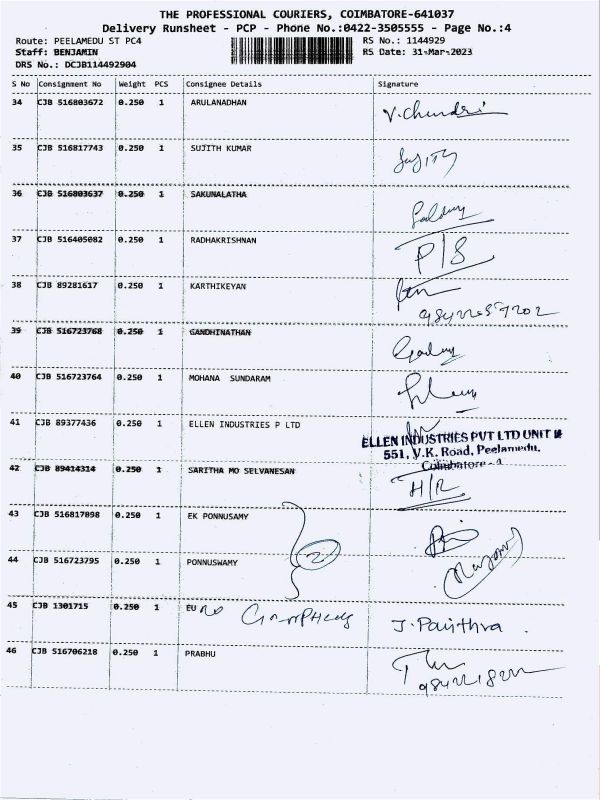 THE PROFESSIONAL COURIERS, COIMBATORE-641037
Delivery Runsheet - PCP - Phone No.:0422-3505555 - Page No.:4
Route: PEELAMEDU ST PC4 RS No.: 1144929
Staff: BENJAMIN RS Date: 31-Mar-2023
DRS No.: DCJB114492904
S No Consignment No Weight PCS Consignee Details Signature
34 CJB 516803672 0.250 1 ARULANADHAN V. Chendri
35 CJB 516817743 0.250 1 SUJITH KUMAR
36 CJB 516803637 0.250 1 SAKUNALATHA
37 CJB 516405082 0.250 1 RADHAKRISHNAN P/S
38 CJB 89281617 0.250 1 KARTHIKEYAN
39 CJB 516723768 0.250 1 GANDHINATHAN
40 CJB 516723764 0.250 1 MOHANA SUNDARAM
41 CJB 89377436 0.250 1 ELLEN INDUSTRIES P LTD
ELLEN INDUSTRIES PVT LTD UNIT
551, V.K. Road, Peelamedu,
Coimbatore - 4
42 CJB 89414314 0.250 1 SARITHA MO SELVANESAN H/R
43 CJB 516817098 0.250 1 EK PONNUSAMY
2
44 CJB 516723795 0.250 1 PONNUSWAMY
45 CJB 1301715 0.250 1 EURO J. Pavithra
46 CJB 516706218 0.250 1 PRABHU